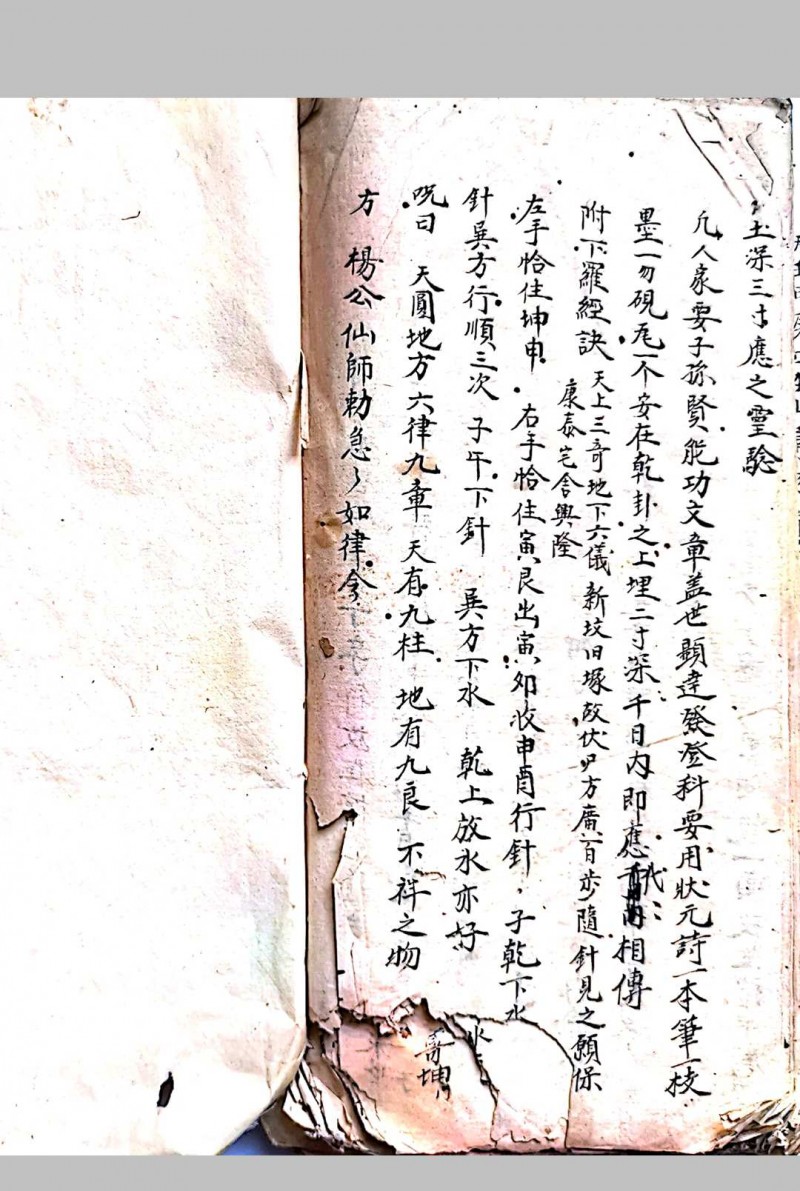 土深三寸應之靈驗
凢人家要子孫賢能功文章盖世顯達發登科要用状元詩一本筆一枝
墨一勿硯尾一个安在乾卦之上埋二寸深千日内即應代〻相傳
附下羅經訣 天上三奇地下六儀 新坟旧塚故伏尸方廣百步隨針見之願保
康泰宅舍興隆
左手恰住坤申 右手恰住寅艮出寅卯收申酉行針 子乾下水
針巽方行順三次 子午下針 巽方下水 乾上放水亦好
呪曰 天圓地方六律九章 天有九柱 地有九良 不祥之物
方 楊公仙師勅急〻如律令
坤
水